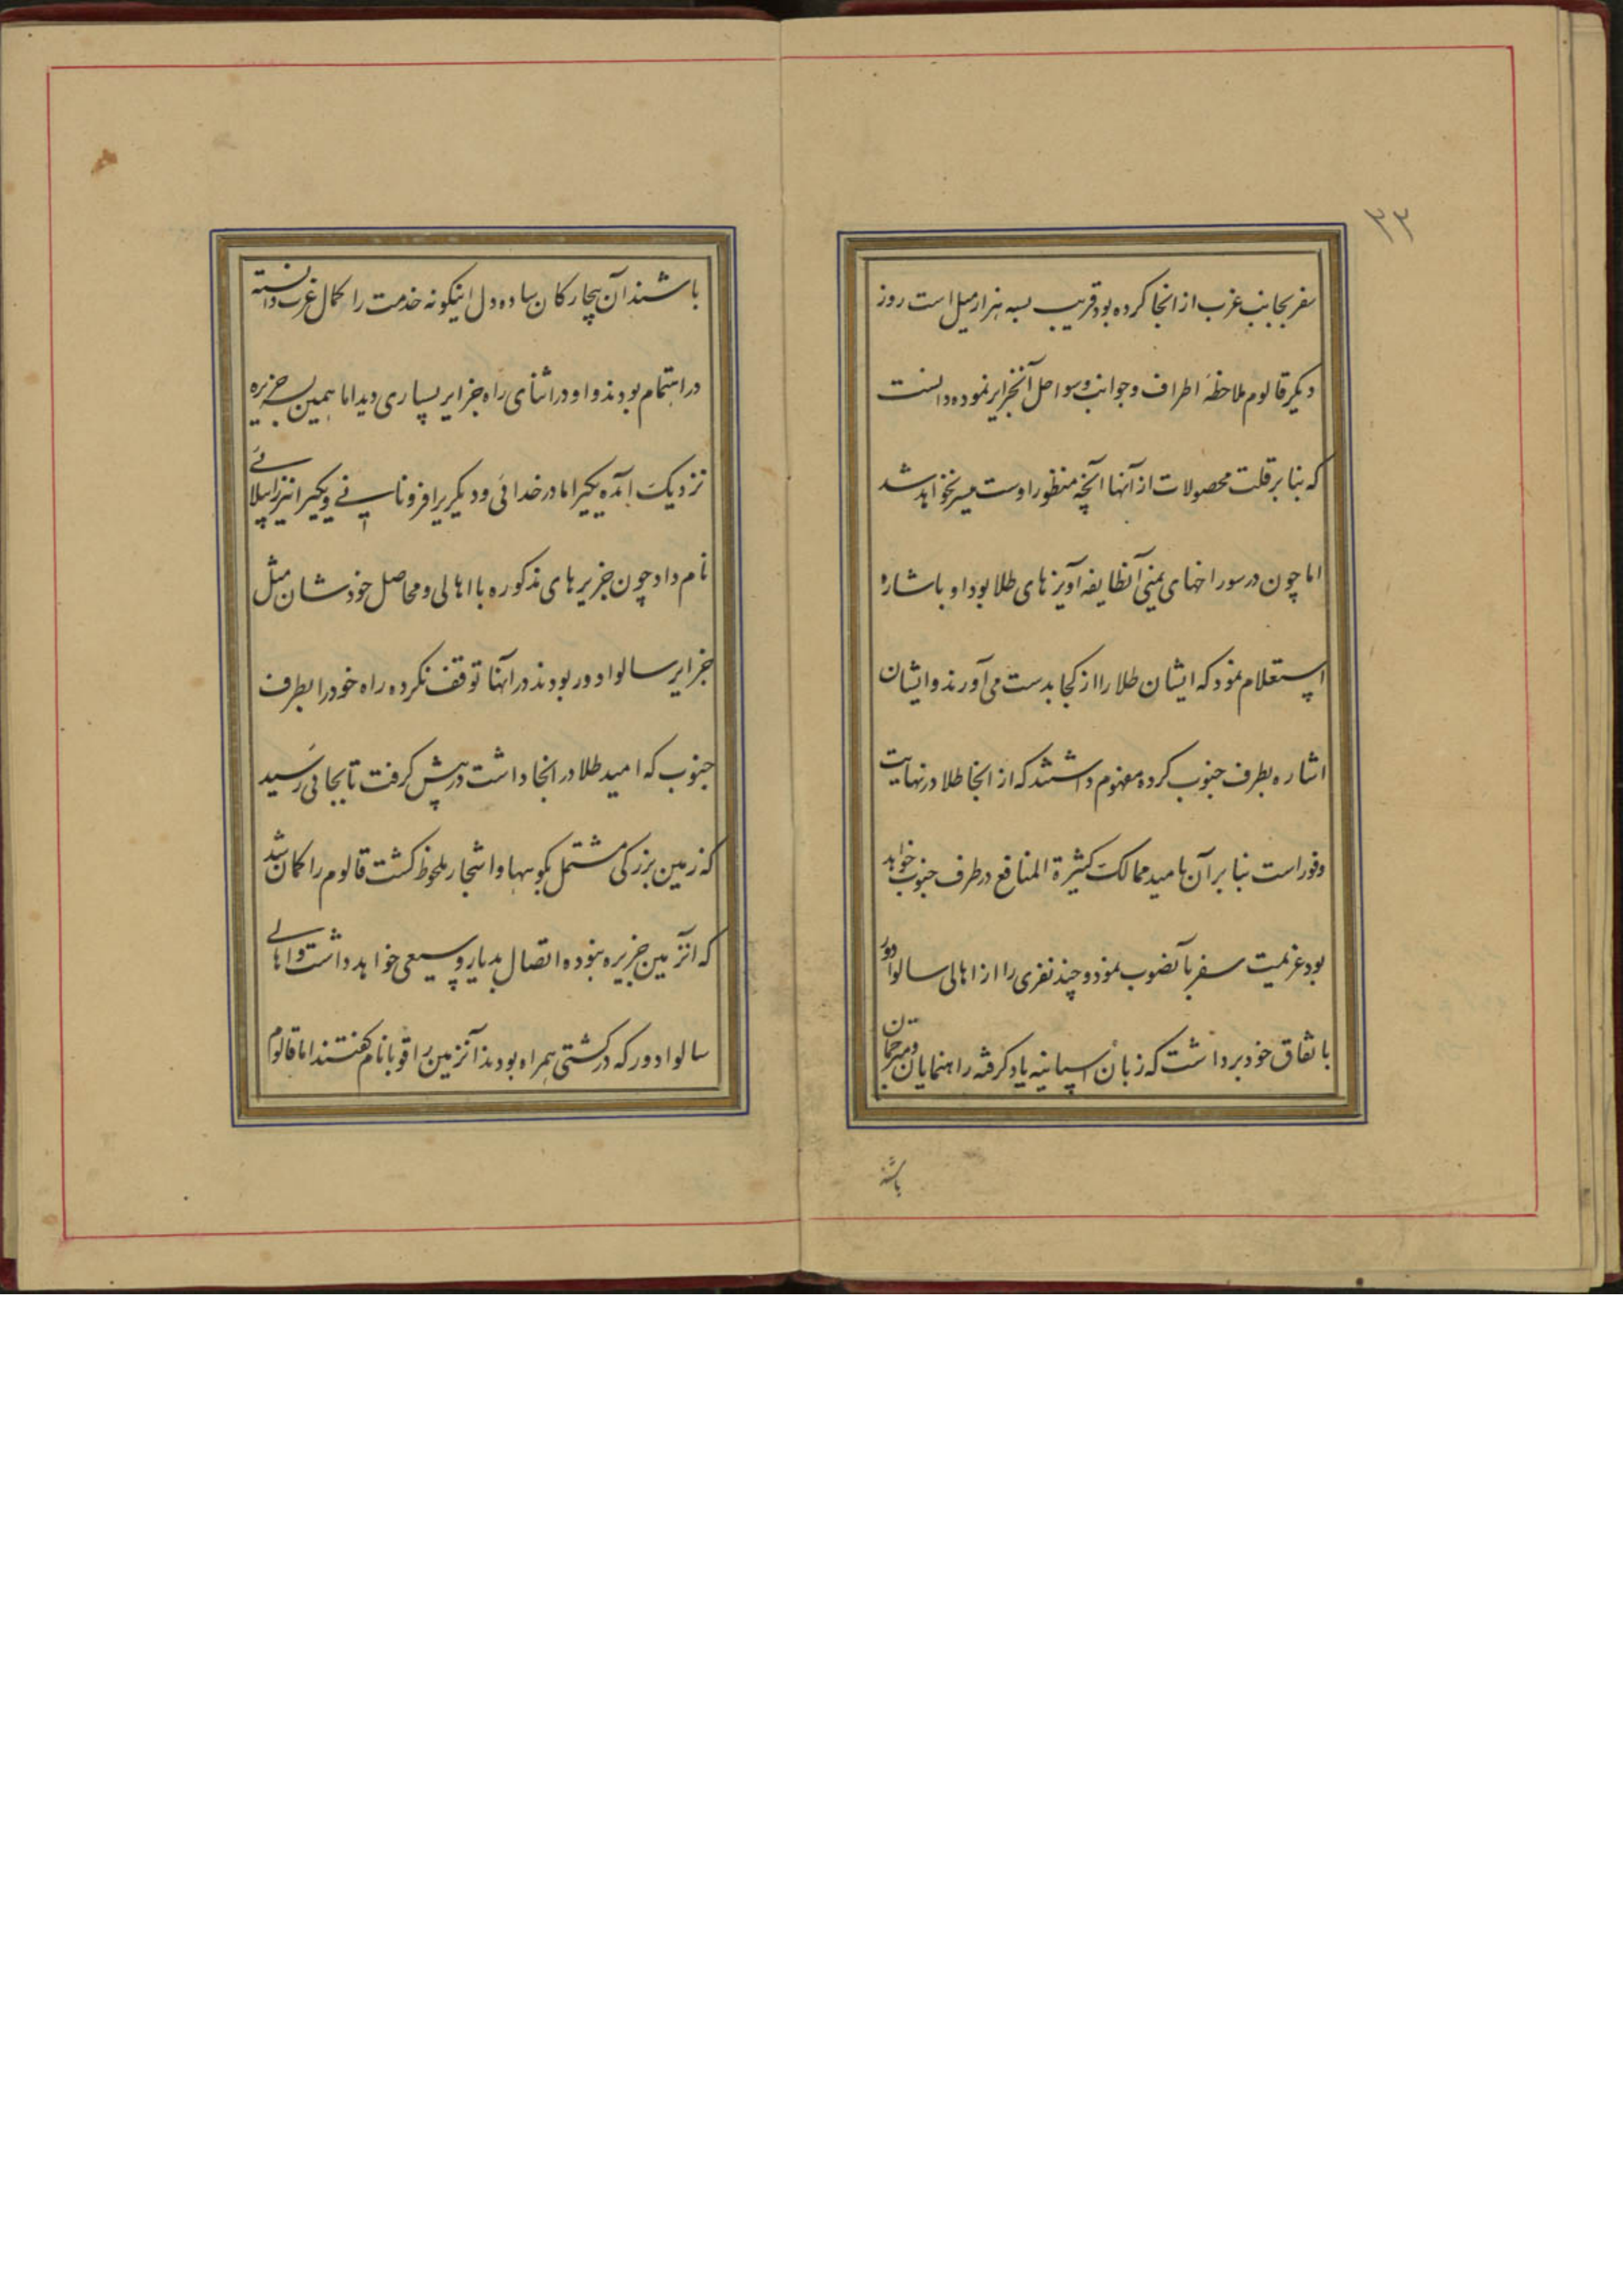 ۳۳
سفر بجانب غرب از انجا کرده بود قریب بسه هزار میل است روز
دیکر قالوم ملاحظهٔ اطراف و جوانب و سواحل آنجزایر نموده دانست
که بنا بر قلت محصولات از آنها آنچه منظور اوست میسر نخواهد شد
اما چون در سوراخهای بینی آنطایفه آویزهای طلا بود او باشاره
استعلام نمود که ایشان طلا را از کجا بدست می آورند و ایشان
اشاره بطرف جنوب کرده مفهوم داشتند که از انجا طلا در نهایت
وفور است بنا بر آن بامید ممالک کثیرة المنافع در طرف جنوب خواهد
بود عزیمت سفر بآنصوب نمود و چند نفری را از اهالی سالوادور
باتفاق خود برداشت که زبان اسپانیه یاد کرفته راهنمایان و مترجمان
باشند
باشند آن بیچارکان ساده دل اینکونه خدمت را کمال عزت دانسته
در اهتمام بودند و او در اثنای راه جزایر بسیاری دید اما بهمین سه جزیره
نزدیک آمده یکیرا مادر خدائی و دیکریرا فرونانسپانی و یکیرا نیز ایپلائی
نام داد چون جزیرهای مذکوره با اهالی و محاصل خودشان مثل
جزایر سالوادور بودند در آنها توقف نکرده راه خود را بطرف
جنوب که امید طلا در انجا داشت در پیش کرفت تا بجائی رسید
که زمین بزرکی مشتمل بکوهها و اشجار ملحوظ کشت قالوم را کمان شد
که آنزمین جزیره نبوده اتصال بدیار وسیعی خواهد داشت و اهالی
سالوادور که در کشتی همراه بودند آنزمین را قوبا نام کفتند اما قالوم